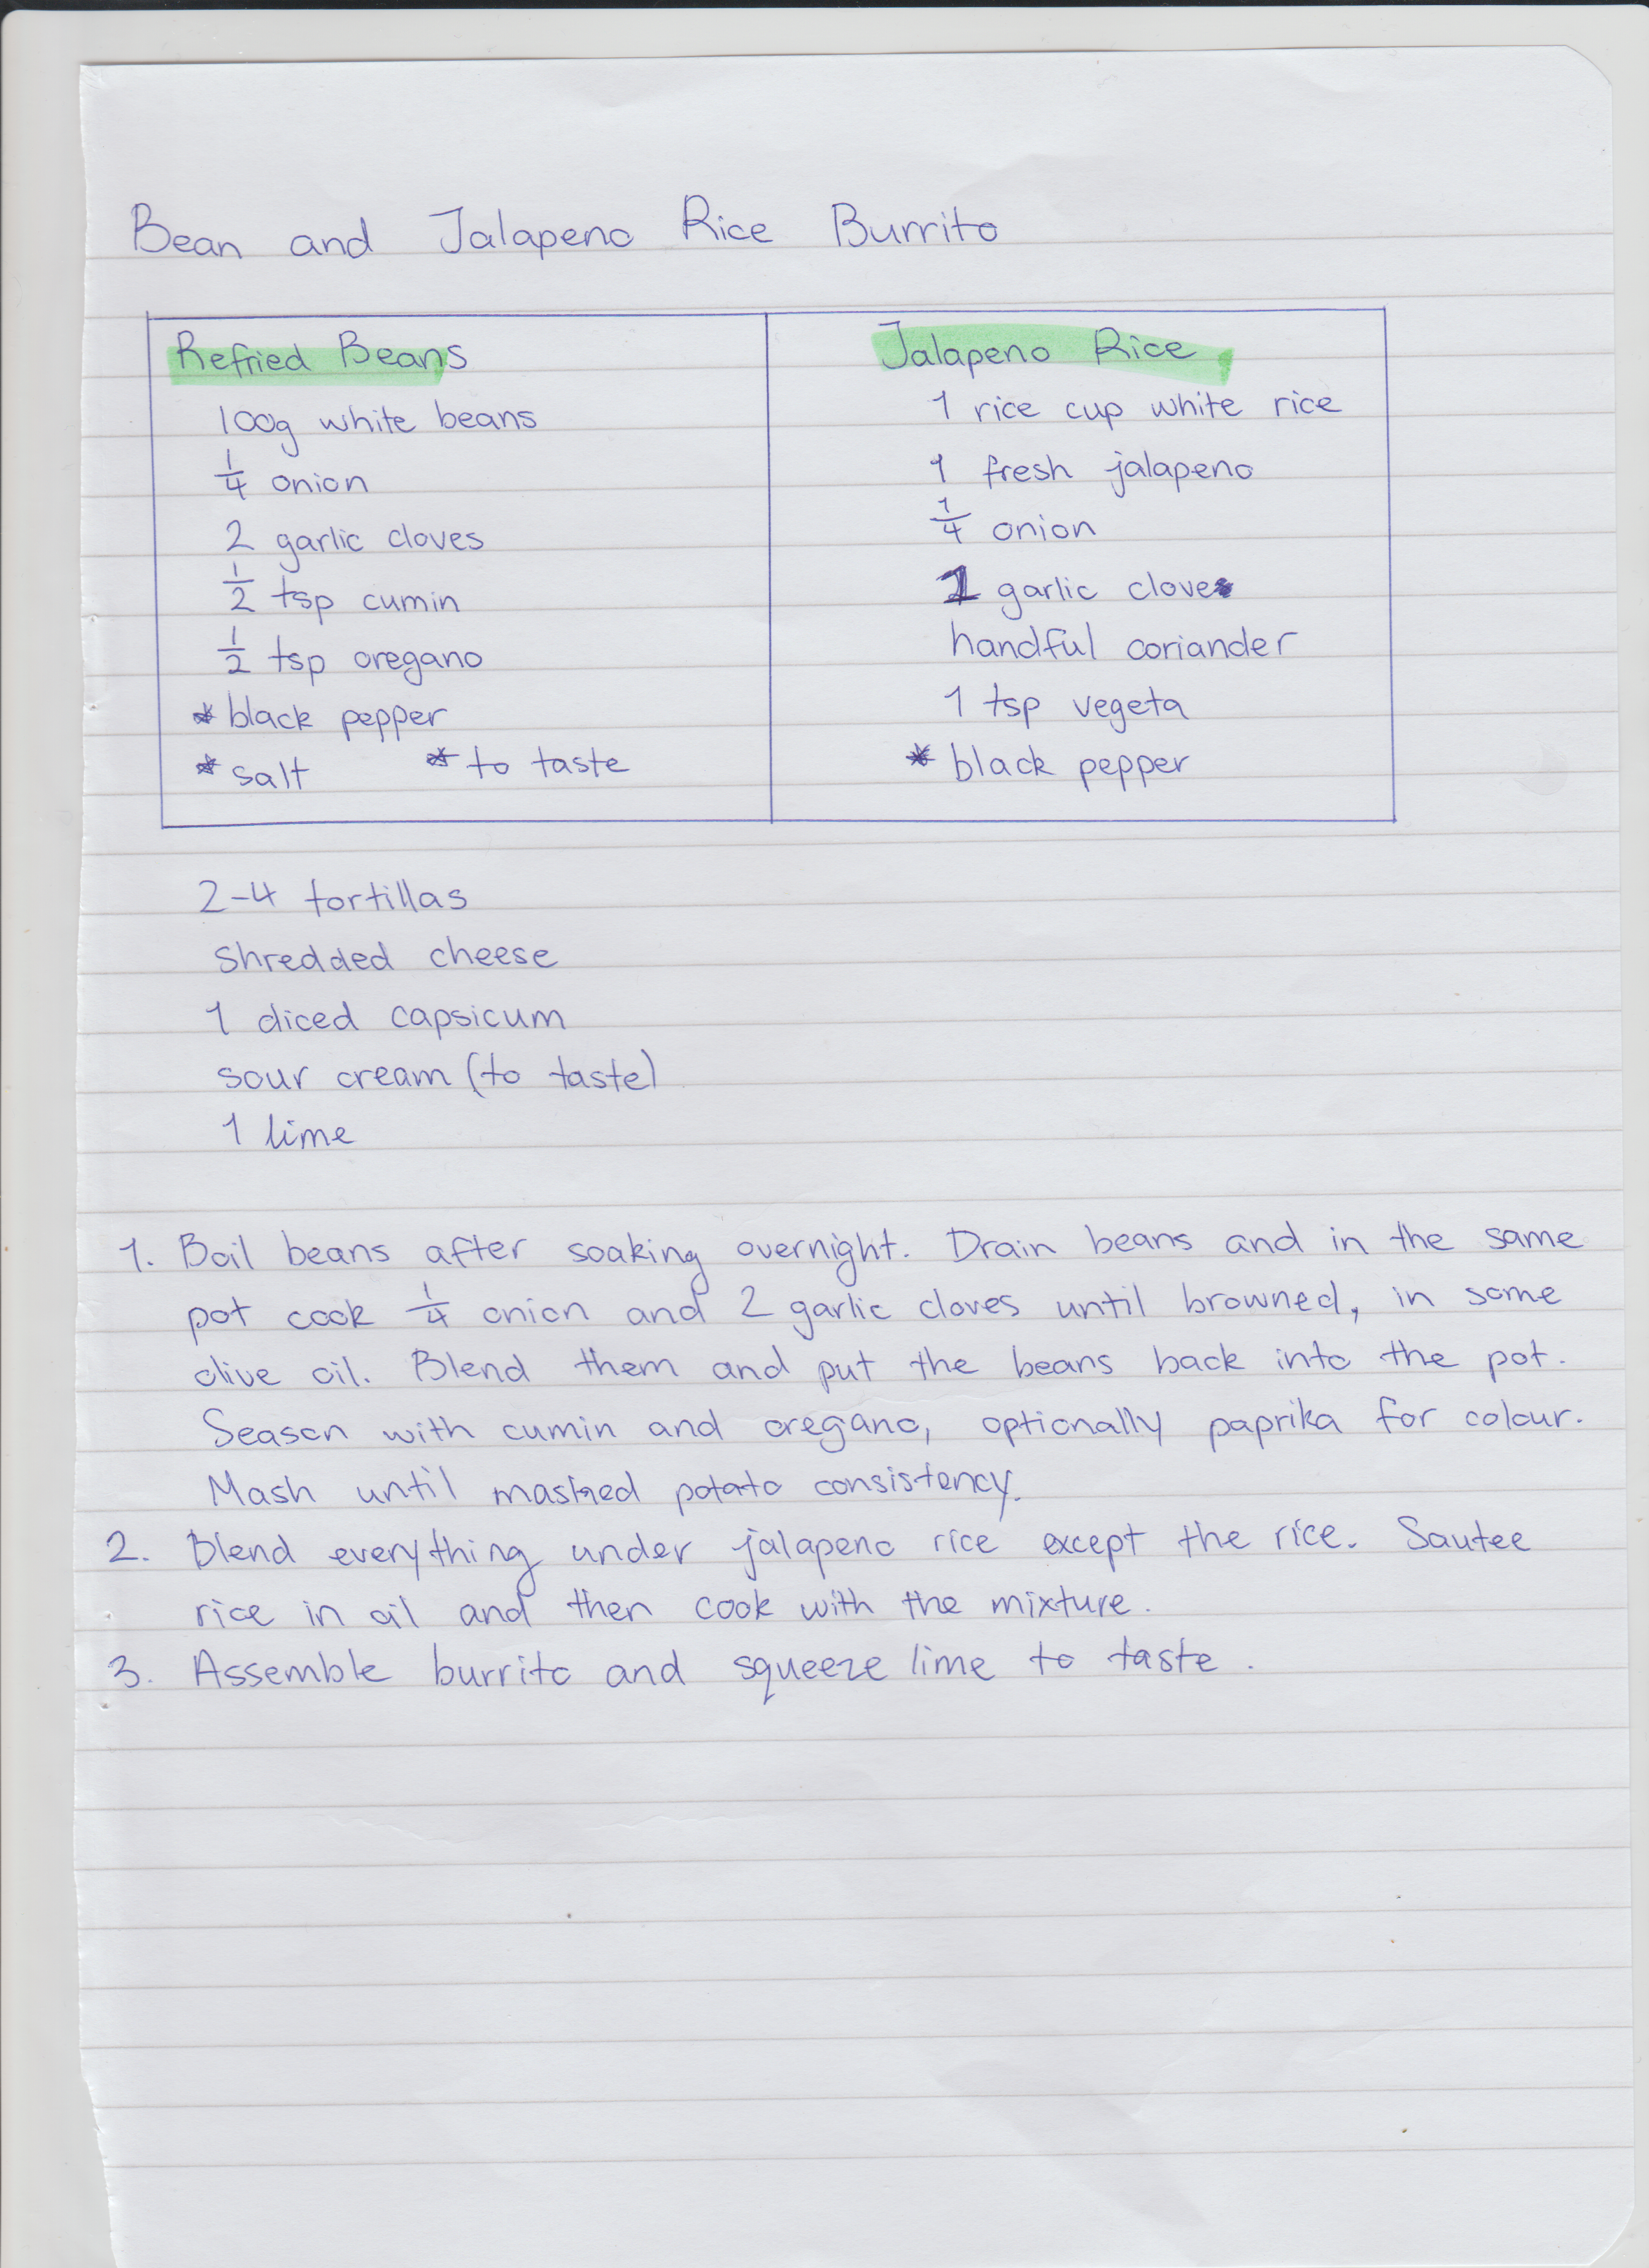 Bean and Jalapeno Rice Burrito
Refried Beans
100g white beans
1/4 onion
2 garlic cloves
1/2 tsp cumin
1/2 tsp oregano
* black pepper
* salt * to taste
Jalapeno Rice
1 rice cup white rice
1 fresh jalapeno
1/4 onion
1 garlic clove
handful coriander
1 tsp vegeta
* black pepper
2-4 tortillas
shredded cheese
1 diced capsicum
sour cream (to taste)
1 lime
1. Boil beans after soaking overnight. Drain beans and in the same
pot cook 1/4 onion and 2 garlic cloves until browned, in some
olive oil. Blend them and put the beans back into the pot.
Season with cumin and oregano, optionally paprika for colour.
Mash until mashed potato consistency.
2. Blend everything under jalapeno rice except the rice. Sautee
rice in oil and then cook with the mixture.
3. Assemble burrito and squeeze lime to taste.